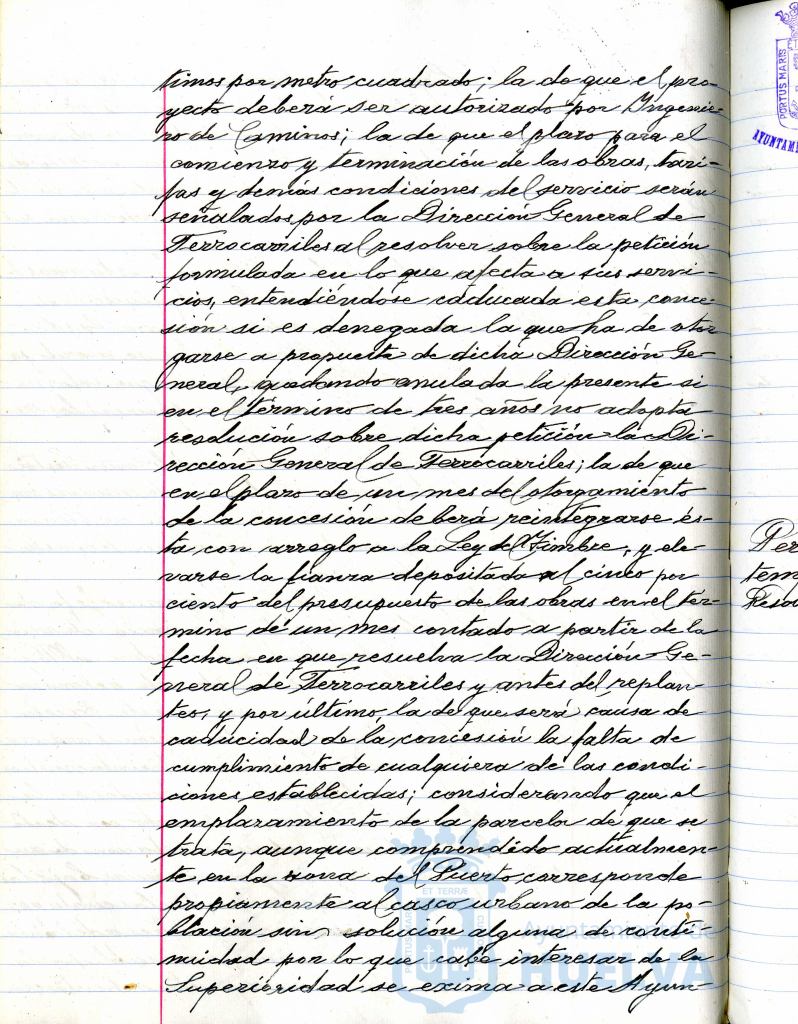 timos por metro cuadrado; la de que el pro-
yecto deberá ser autorizado por Ingenie-
ro de Caminos; la de que el plazo para el
comienzo y terminación de las obras, tari-
fas y demás condiciones del servicio serán
señalados por la Dirección General de
Ferrocarriles al resolver sobre la petición
formulada en lo que afecta a sus servi-
cios, entendiéndose caducada esta conce-
sión si es denegada la que ha de otor-
garse a propuesta de dicha Dirección Ge-
neral, quedando anulada la presente si
en el término de tres años no adopta
resolución sobre dicha petición la Di-
rección General de Ferrocarriles; la de que
en el plazo de un mes del otorgamiento
de la concesión deberá reintegrarse és-
ta con arreglo a la Ley del Timbre, y ele-
varse la fianza depositada al cinco por
ciento del presupuesto de las obras en el tér-
mino de un mes contado a partir de la
fecha en que resuelva la Dirección Ge-
neral de Ferrocarriles y antes del replan-
teo, y por último, la de que será causa de
caducidad de la concesión la falta de
cumplimiento de cualquiera de las condi-
ciones establecidas; considerando que el
emplazamiento de la parcela de que se
trata, aunque comprendido actualmen-
te en la zona del Puerto corresponde
propiamente al casco urbano de la po-
blación sin solución alguna de conti-
nuidad por lo que cabe interesar de la
Superioridad se exima a este Ayun-
PORTUS MARIS
AYUNTAM
Per
tem
Resa
ET TERRÆ
PORTUS MARIS
Ayuntamiento de
HUELVA